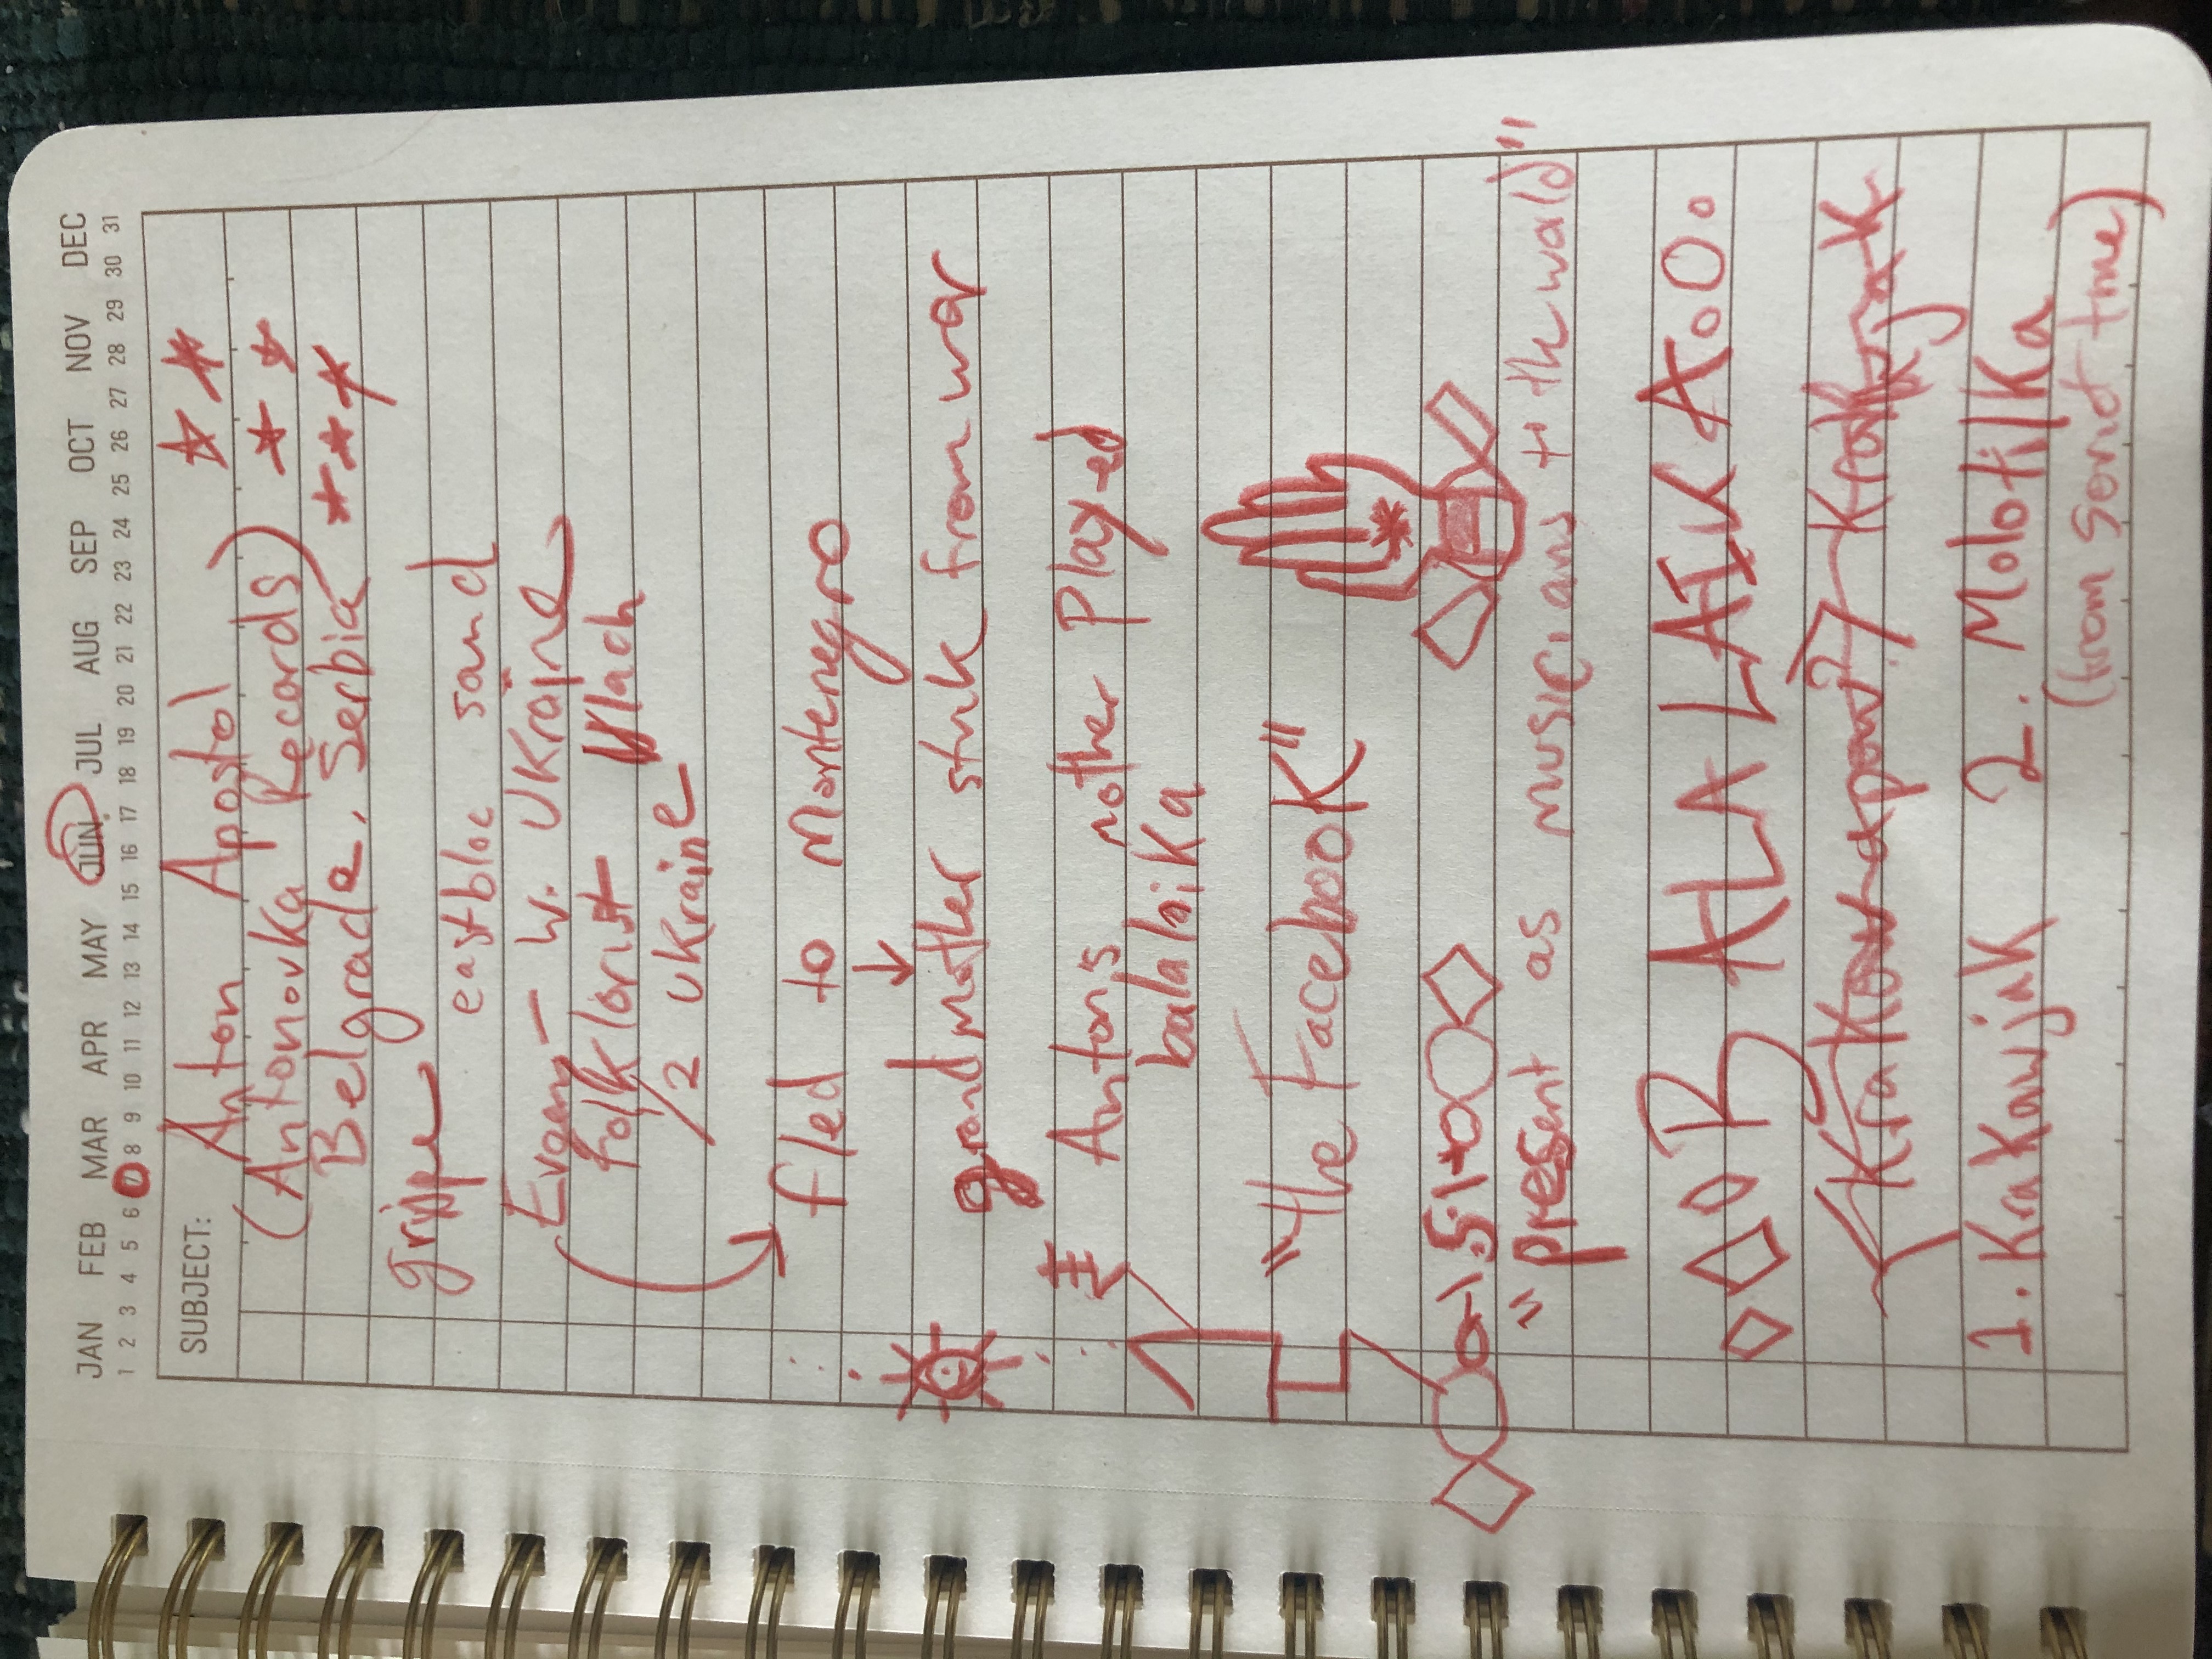 JAN FEB MAR APR MAY JUN JUL AUG SEP OCT NOV DEC
1 2 3 4 5 6 7 8 9 10 11 12 13 14 15 16 17 18 19 20 21 22 23 24 25 26 27 28 29 30 31
SUBJECT:
Anton Apostol
(Antonovka Records)
Belgrade, Serbia
grippe
eastbloc sand
Evgeny - W. Ukraine
folklorist Vlach
1/2 Ukraine
fled to Montenegro
grandmother stuck from war
Anton's mother Played
balalaika
"the Facebook"
"present as musicians the world"
BALALAIKA
Krakow
1. Krakowjak 2. Molotilka
(from soviet time)